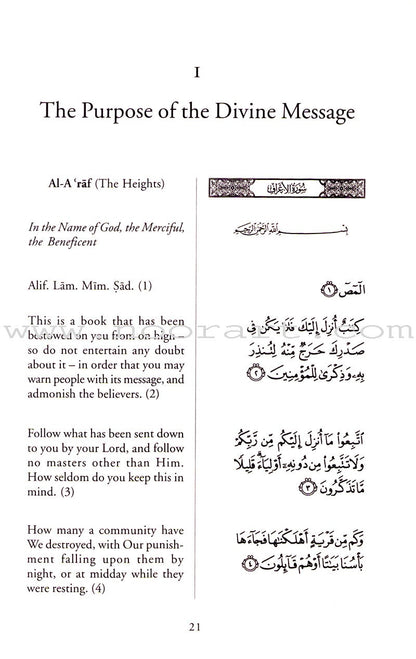 I
The Purpose of the Divine Message
Al-A ʿrāf (The Heights)
سورة الأعراف
In the Name of God, the Merciful,
the Beneficent
بِسْمِ اللَّهِ الرَّحْمَٰنِ الرَّحِيمِ
Alif. Lām. Mīm. Ṣād. (1)
الٓمٓصٓ ﴿١﴾
This is a book that has been
bestowed on you from on high –
so do not entertain any doubt
about it – in order that you may
warn people with its message, and
admonish the believers. (2)
كِتَٰبٌ أُنزِلَ إِلَيْكَ فَلَا يَكُن فِى
صَدْرِكَ حَرَجٌ مِّنْهُ لِتُنذِرَ
بِهِۦ وَذِكْرَىٰ لِلْمُؤْمِنِينَ ﴿٢﴾
Follow what has been sent down
to you by your Lord, and follow
no masters other than Him.
How seldom do you keep this in
mind. (3)
ٱتَّبِعُوا۟ مَآ أُنزِلَ إِلَيْكُم مِّن رَّبِّكُمْ
وَلَا تَتَّبِعُوا۟ مِن دُونِهِۦٓ أَوْلِيَآءَ ۗ قَلِيلًا
مَّا تَذَكَّرُونَ ﴿٣﴾
How many a community have
We destroyed, with Our punish-
ment falling upon them by
night, or at midday while they
were resting. (4)
وَكَم مِّن قَرْيَةٍ أَهْلَكْنَٰهَا فَجَآءَهَا
بَأْسُنَا بَيَٰتًا أَوْ هُمْ قَآئِلُونَ ﴿٤﴾
21